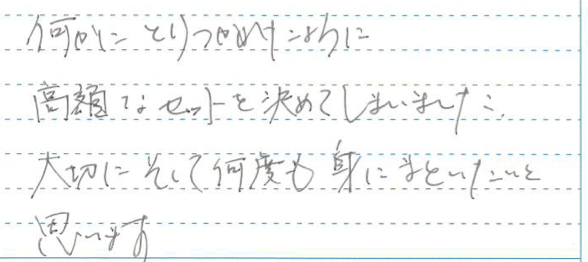 何かにとりつかれたように
高額なセットを決めてしまいました。
大切にそして何度も身にまといたいと
思います